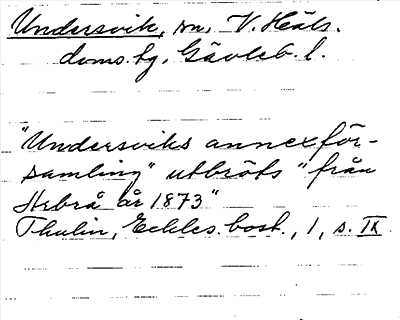 Undersvik, sn, V. Häls.
doms.hg, Gävleb. l.
"Undersviks annexför-
samling" utbröts "från
Arbrå år 1873"
Thulin, Eckles. bost., 1, s. IX